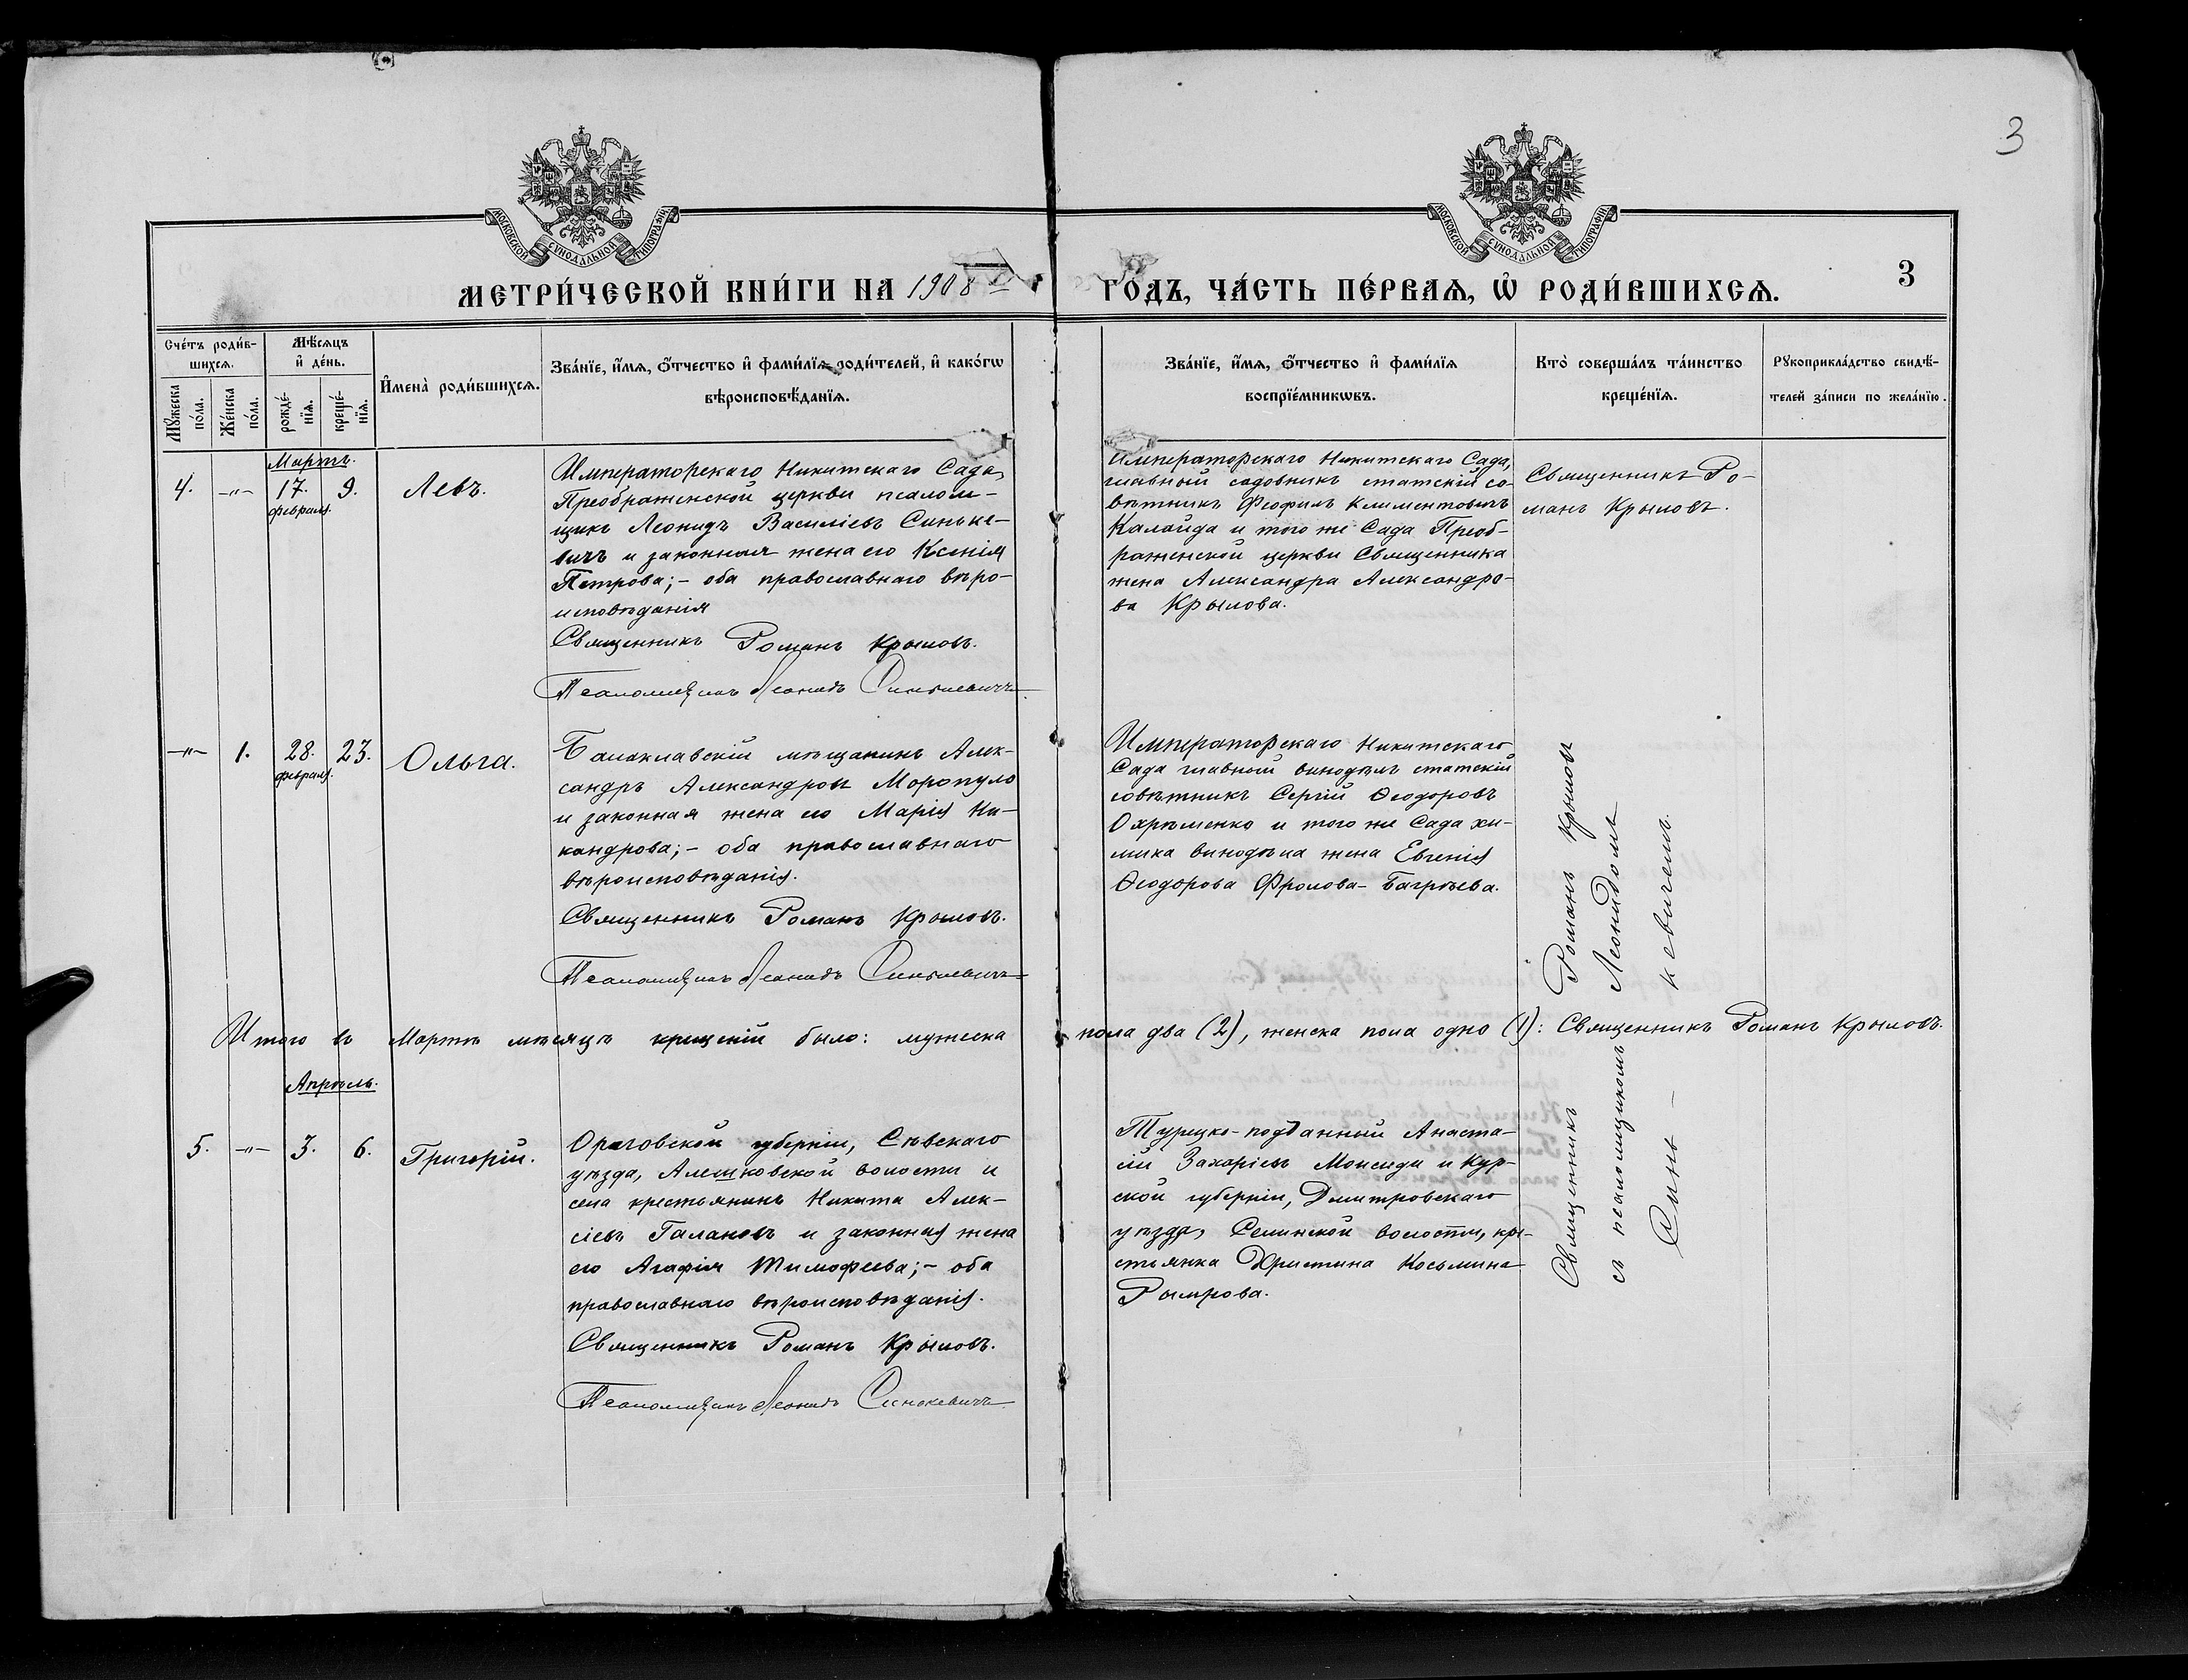 3
МОСКОВСКОЙ СѴНОДАЛЬНОЙ ТИПОГРАФІИ
МОСКОВСКОЙ СѴНОДАЛЬНОЙ ТИПОГРАФІИ
МЕТРИ́ЧЕСКОЙ КНИ́ГИ НА 1908 ГО́ДЪ, ЧА́СТЬ ПЕ́РВАѦ, Ѡ҆ РОДИ́ВШИХСѦ.
3
Сче́тъ роди́в-
шихсѧ.
Мꙋ́жеска по́ла.
Же́нска по́ла.
Мѣ́сѧцъ
и҆ де́нь.
рожде́-
нїѧ.
креще́-
нїѧ.
И҆мена̀ роди́вшихсѧ.
Зва́нїе, и҆́мѧ, ѻ҆́тчество и҆ фами́лїѧ роди́телей, и҆ како́гѡ
вѣроисповѣ́данїѧ.
Зва́нїе, и҆́мѧ, ѻ҆́тчество и҆ фами́лїѧ
воспрїе́мникѡвъ.
Кто̀ соверша́лъ та́инство
креще́нїѧ.
Рꙋкоприкла́дство свидѣ́-
телей за́писи по жела́нїю.
Мартъ.
4. -„- 17. февраля. 9. Левъ.
Императорскаго Никитскаго Сада,
Преображенской церкви псалом-
щикъ Леонидъ Василіевъ Синьке-
вичъ и законная жена его Ксенія
Петрова;- оба православнаго вѣро-
исповѣданія
Священникъ Романъ Крыловъ.
Псаломщикъ Леонидъ Синькевичъ
Императорскаго Никитскаго Сада,
главный садовникъ статскій со-
вѣтникъ Феофилъ Климентовичъ
Калайда и того же Сада Преоб-
раженской церкви Священника
жена Александра Александро-
ва Крылова.
Священникъ Ро-
манъ Крыловъ.
-„- 1. 28. февраля. 23. Ольга.
Балаклавскій мѣщанинъ Алек-
сандръ Александровъ Моропуло
и законная жена его Марія Ни-
кандрова;- оба православнаго
вѣроисповѣданія.
Священникъ Романъ Крыловъ.
Псаломщикъ Леонидъ Синькевичъ
Императорскаго Никитскаго
Сада главный винодѣлъ статскій
совѣтникъ Сергій Ѳеодоровъ
Охрѣменко и того же Сада хи-
мика винодѣла жена Евгенія
Ѳеодорова Фролова-Багрѣева.
Священникъ Романъ Крыловъ
съ псаломщикомъ Леонидомъ
Синь- кевичемъ.
Итого въ Мартѣ мѣсяцѣ крещеній было: мужеска пола два (2), женска пола одно (1): Священникъ Романъ Крыловъ.
Апрѣль.
5. -„- 3. 6. Григорій.
Орловской губерніи, Сѣвскаго
уѣзда, Алешковской волости и
села крестьянинъ Никита Алек-
сіевъ Галановъ и законная жена
его Агафія Тимофеева;- оба
православнаго вѣроисповѣданія.
Священникъ Романъ Крыловъ.
Псаломщикъ Леонидъ Синькевичъ
Турецко-подданный Анаста-
сій Захаріевъ и Кур-
ской губерніи, Дмитровскаго
уѣзда, волости, кре-
стьянка Христина Косьмина